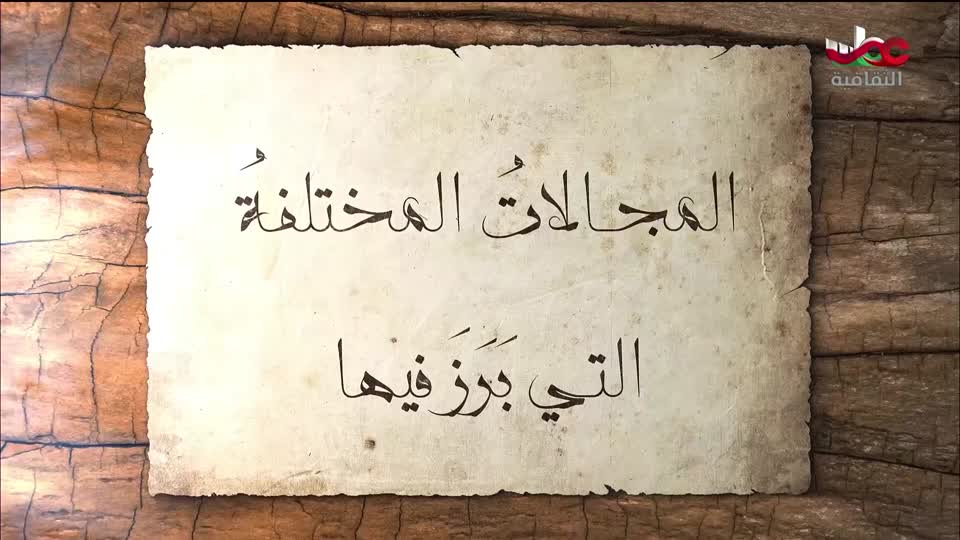 عمان
الثقافية
المجالاتُ المختلفةُ
التي بَرَزَ فيها